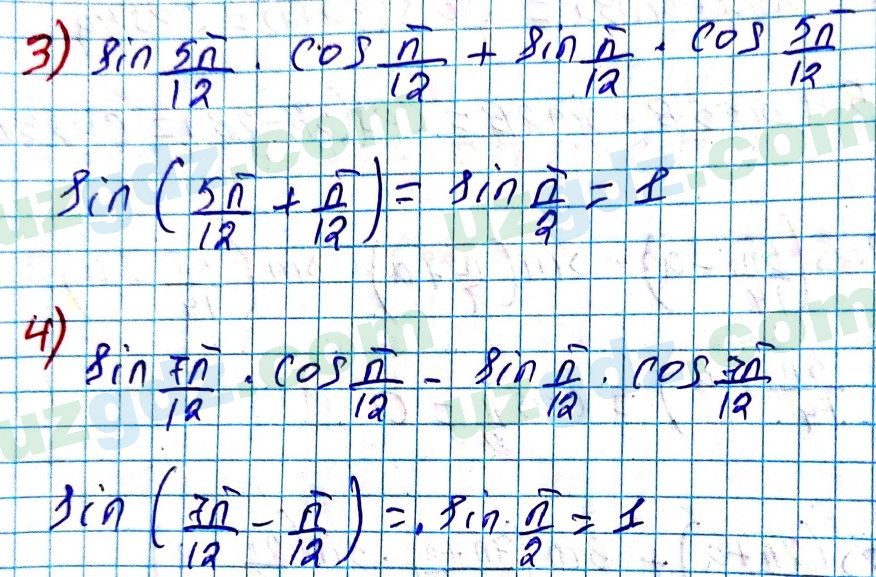 3) sin 5π/12 · cos π/12 + sin π/12 · cos 5π/12
sin (5π/12 + π/12) = sin π/2 = 1
4) sin 7π/12 · cos π/12 - sin π/12 · cos 7π/12
sin (7π/12 - π/12) = sin π/2 = 1
uzgdz.com